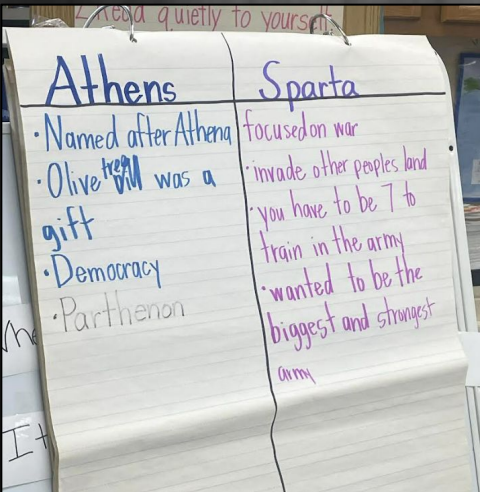 Read quietly to yourself
Athens
· Named after Athena
· Olive tree was a
gift
· Democracy
· Parthenon
Sparta
focused on war
· invade other peoples land
· you have to be 7 to
train in the army
· wanted to be the
biggest and strongest
army